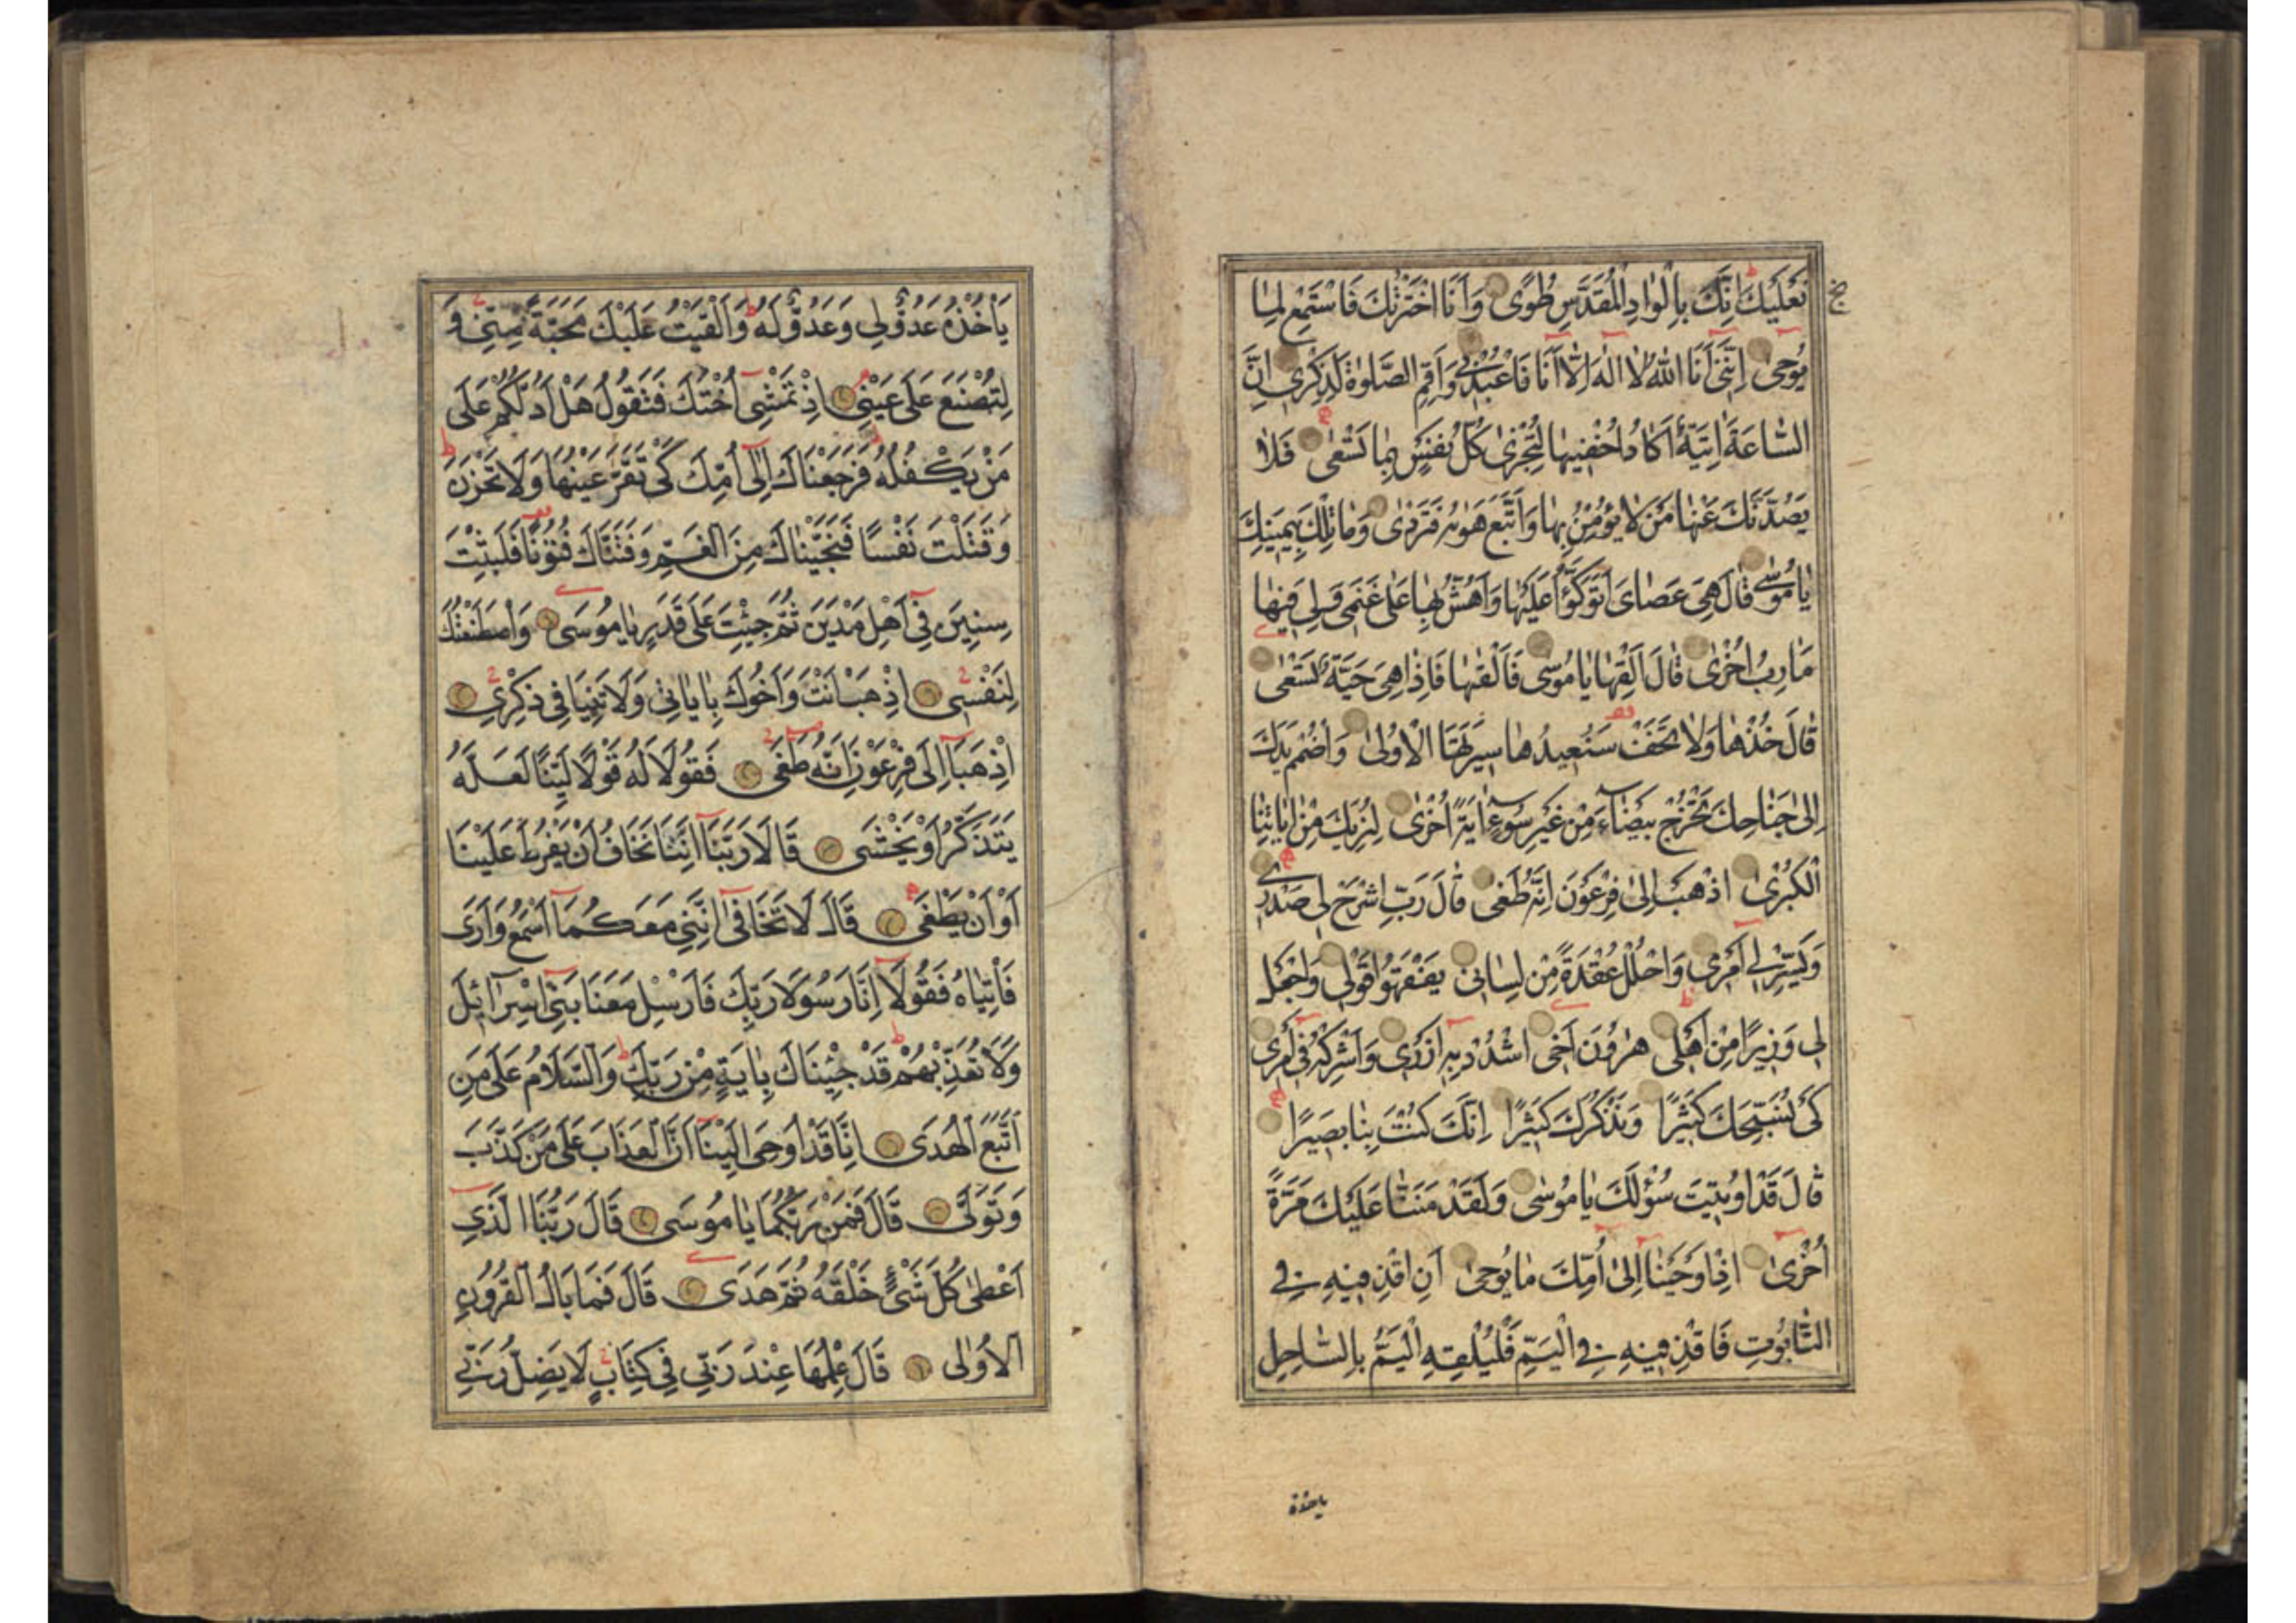 نَعْلَيْكَ اِنَّكَ بِالْوَادِ الْمُقَدَّسِ طُوًى وَاَنَا اخْتَرْتُكَ فَاسْتَمِعْ لِمَا
يُوحٰى اِنَّنِى اَنَا اللّٰهُ لَا اِلٰهَ اِلَّا اَنَا فَاعْبُدْنِى وَاَقِمِ الصَّلٰوةَ لِذِكْرِى اِنَّ
السَّاعَةَ اٰتِيَةٌ اَكَادُ اُخْفِيهَا لِتُجْزٰى كُلُّ نَفْسٍ بِمَا تَسْعٰى فَلَا
يَصُدَّنَّكَ عَنْهَا مَنْ لَا يُؤْمِنُ بِهَا وَاتَّبَعَ هَوٰيهُ فَتَرْدٰى وَمَا تِلْكَ بِيَمِينِكَ
يَا مُوسٰى قَالَ هِىَ عَصَاىَ اَتَوَكَّؤُا عَلَيْهَا وَاَهُشُّ بِهَا عَلٰى غَنَمِى وَلِىَ فِيهَا
مَاٰرِبُ اُخْرٰى قَالَ اَلْقِهَا يَا مُوسٰى فَاَلْقٰيهَا فَاِذَا هِىَ حَيَّةٌ تَسْعٰى
قَالَ خُذْهَا وَلَا تَخَفْ سَنُعِيدُهَا سِيرَتَهَا الْاُولٰى وَاضْمُمْ يَدَكَ
اِلٰى جَنَاحِكَ تَخْرُجْ بَيْضَاءَ مِنْ غَيْرِ سُوءٍ اٰيَةً اُخْرٰى لِنُرِيَكَ مِنْ اٰيَاتِنَا
الْكُبْرٰى اِذْهَبْ اِلٰى فِرْعَوْنَ اِنَّهُ طَغٰى قَالَ رَبِّ اشْرَحْ لِى صَدْرِى
وَيَسِّرْ لِى اَمْرِى وَاحْلُلْ عُقْدَةً مِنْ لِسَانِى يَفْقَهُوا قَوْلِى وَاجْعَلْ
لِى وَزِيرًا مِنْ اَهْلِى هٰرُونَ اَخِى اشْدُدْ بِهِ اَزْرِى وَاَشْرِكْهُ فِى اَمْرِى
كَىْ نُسَبِّحَكَ كَثِيرًا وَنَذْكُرَكَ كَثِيرًا اِنَّكَ كُنْتَ بِنَا بَصِيرًا
قَالَ قَدْ اُوتِيتَ سُؤْلَكَ يَا مُوسٰى وَلَقَدْ مَنَنَّا عَلَيْكَ مَرَّةً
اُخْرٰى اِذْ اَوْحَيْنَا اِلٰى اُمِّكَ مَا يُوحٰى اَنِ اقْذِفِيهِ فِى
التَّابُوتِ فَاقْذِفِيهِ فِى الْيَمِّ فَلْيُلْقِهِ الْيَمُّ بِالسَّاحِلِ
ياخذه
يَأْخُذْهُ عَدُوٌّ لِى وَعَدُوٌّ لَهُ وَاَلْقَيْتُ عَلَيْكَ مَحَبَّةً مِنِّى وَ
لِتُصْنَعَ عَلٰى عَيْنِى اِذْ تَمْشِى اُخْتُكَ فَتَقُولُ هَلْ اَدُلُّكُمْ عَلٰى
مَنْ يَكْفُلُهُ فَرَجَعْنَاكَ اِلٰى اُمِّكَ كَىْ تَقَرَّ عَيْنُهَا وَلَا تَحْزَنَ
وَقَتَلْتَ نَفْسًا فَنَجَّيْنَاكَ مِنَ الْغَمِّ وَفَتَنَّاكَ فُتُونًا فَلَبِثْتَ
سِنِينَ فِى اَهْلِ مَدْيَنَ ثُمَّ جِئْتَ عَلٰى قَدَرٍ يَا مُوسٰى وَاصْطَنَعْتُكَ
لِنَفْسِى اِذْهَبْ اَنْتَ وَاَخُوكَ بِاٰيَاتِى وَلَا تَنِيَا فِى ذِكْرِى
اِذْهَبَا اِلٰى فِرْعَوْنَ اِنَّهُ طَغٰى فَقُولَا لَهُ قَوْلًا لَيِّنًا لَعَلَّهُ
يَتَذَكَّرُ اَوْ يَخْشٰى قَالَا رَبَّنَا اِنَّنَا نَخَافُ اَنْ يَفْرُطَ عَلَيْنَا
اَوْ اَنْ يَطْغٰى قَالَ لَا تَخَافَا اِنَّنِى مَعَكُمَا اَسْمَعُ وَاَرٰى
فَأْتِيَاهُ فَقُولَا اِنَّا رَسُولَا رَبِّكَ فَاَرْسِلْ مَعَنَا بَنِى اِسْرَائِلَ
وَلَا تُعَذِّبْهُمْ قَدْ جِئْنَاكَ بِاٰيَةٍ مِنْ رَبِّكَ وَالسَّلَامُ عَلٰى مَنِ
اتَّبَعَ الْهُدٰى اِنَّا قَدْ اُوحِىَ اِلَيْنَا اَنَّ الْعَذَابَ عَلٰى مَنْ كَذَّبَ
وَتَوَلّٰى قَالَ فَمَنْ رَبُّكُمَا يَا مُوسٰى قَالَ رَبُّنَا الَّذِى
اَعْطٰى كُلَّ شَىْءٍ خَلْقَهُ ثُمَّ هَدٰى قَالَ فَمَا بَالُ الْقُرُونِ
الْاُولٰى قَالَ عِلْمُهَا عِنْدَ رَبِّى فِى كِتَابٍ لَا يَضِلُّ رَبِّى